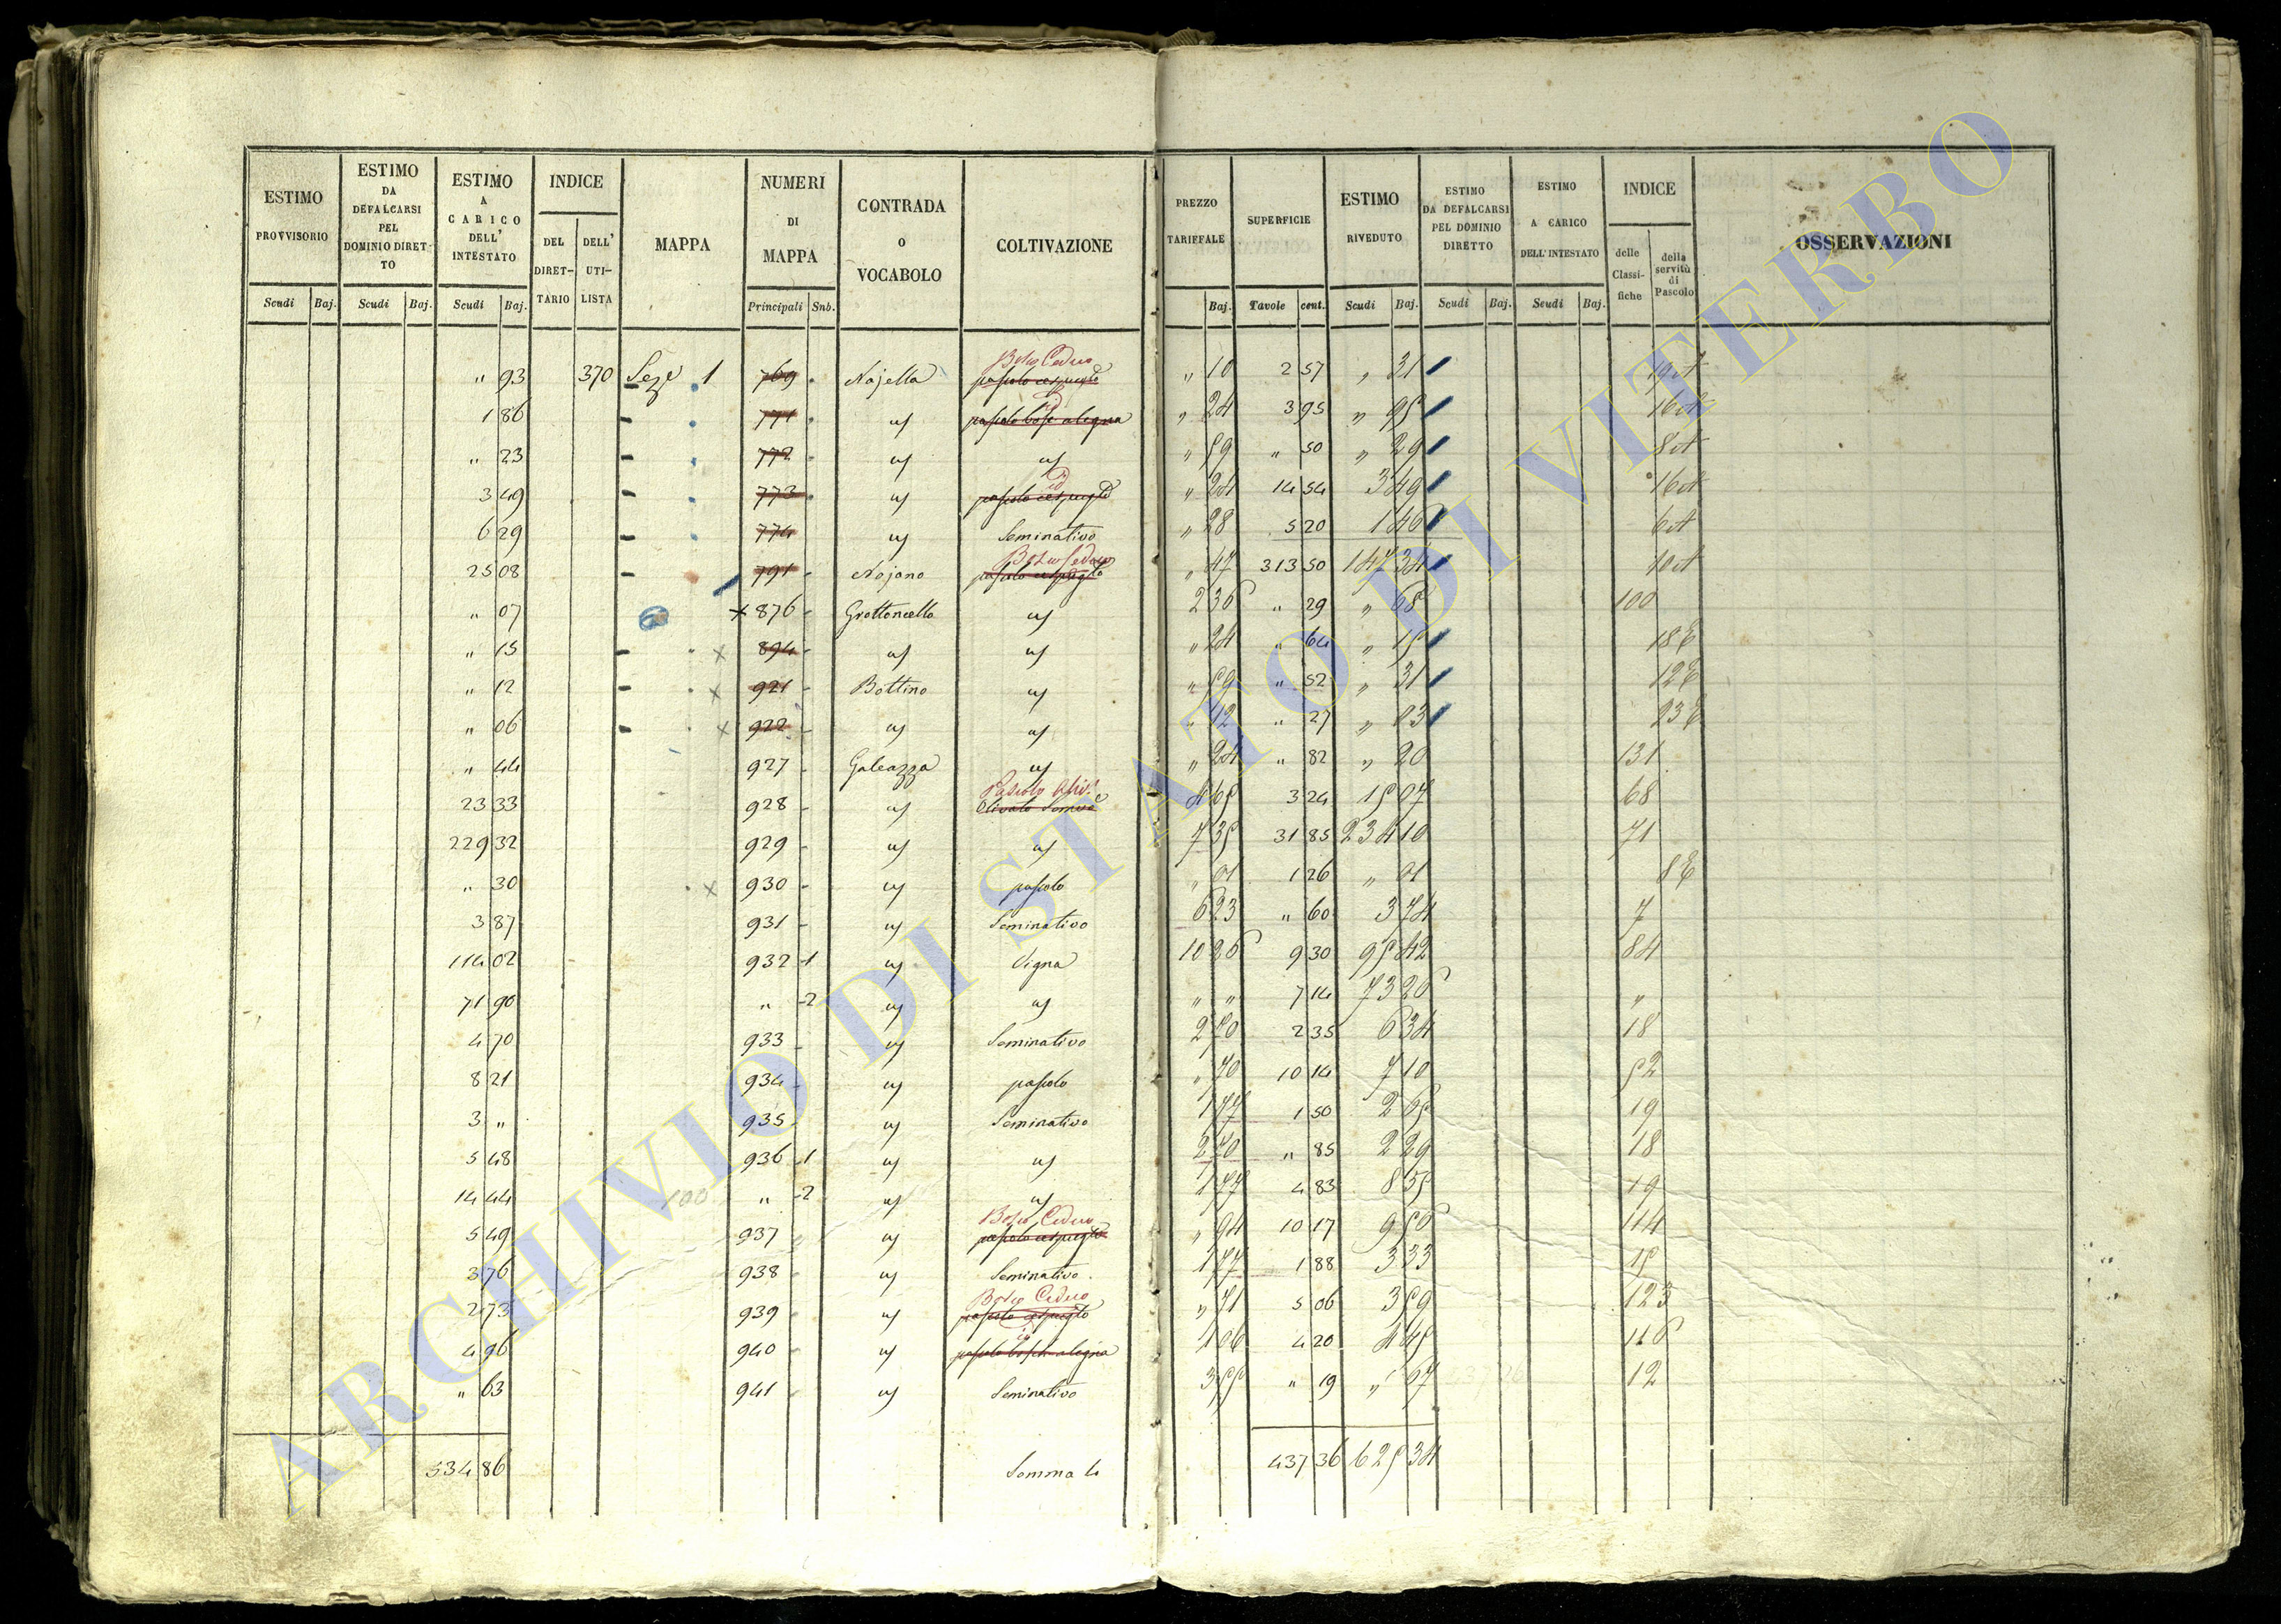 ESTIMO PROVVISORIO | ESTIMO DA DEFALCARSI PEL DOMINIO DIRETTO | ESTIMO A CARICO DELL' INTESTATO | INDICE | MAPPA | NUMERI DI MAPPA | CONTRADA O VOCABOLO | COLTIVAZIONE | PREZZO TARIFFALE | SUPERFICIE | ESTIMO RIVEDUTO | ESTIMO DA DEFALCARSI PEL DOMINIO DIRETTO | ESTIMO A CARICO DELL'INTESTATO | INDICE | OSSERVAZIONI
DEL DIRET-TARIO | DELL' UTI-LISTA | delle Classi-fiche | della servitù di Pascolo
Scudi | Baj. | Scudi | Baj. | Scudi | Baj. | Principali | Snb. | Baj. | Tavole | cent. | Scudi | Baj. | Scudi | Baj. | Scudi | Baj.
Bosco Ceduo
" 93 | 370 | Seze 1 | 769 | Nojella | pascolo cespugto | " 10 | 2 57 | " 31 | 19 A
id
1 86 | 771 | us | pascolo bosc alegna | " 24 | 3 95 | " 95 | 16 A
" 23 | 772 | us | us | " 59 | " 50 | " 29 | 8 A
id
3 49 | 773 | us | pascolo cespugto | " 24 | 14 54 | 3 49 | 16 A
6 29 | 774 | us | Seminativo | " 28 | 5 20 | 1 46 | 6 A
Bosco Ceduo
25 08 | 791 | Nojano | pascolo cespugto | " 47 | 313 50 | 147 34 | 10 A
" 07 | × 876 | Grottoncello | us | 2 36 | " 29 | " 68 | 100
" 15 | × 894 | us | us | " 24 | " 64 | " 15 | 18 E
" 12 | × 921 | Bottino | us | " 59 | " 52 | " 31 | 12 E
" 06 | × 922 | us | us | " 12 | " 27 | " 03 | 23 E
" 44 | 927 | Galeazza | us | " 24 | " 82 | " 20 | 131
Pascolo Oliv.
23 33 | 928 | us | Olivato Semvo | 4 65 | 3 24 | 15 07 | 68
229 32 | 929 | us | us | 7 35 | 31 85 | 234 10 | 71
" 30 | × 930 | us | pascolo | " 01 | 1 26 | " 01 | 8 E
3 87 | 931 | us | Seminativo | 6 23 | " 60 | 3 74 | 7
114 02 | 932 1 | us | Vigna | 10 26 | 9 30 | 95 42 | 84
71 90 | " 2 | us | us | " " | 7 14 | 73 26 | "
4 70 | 933 | us | Seminativo | 2 70 | 2 35 | 6 34 | 18
8 21 | 934 | us | pascolo | " 70 | 10 14 | 7 10 | 52
3 " | 935 | us | Seminativo | 1 77 | 1 50 | 2 65 | 19
5 48 | 936 1 | us | us | 2 70 | " 85 | 2 29 | 18
14 44 | 100 | " 2 | us | us | 1 77 | 4 83 | 8 55 | 19
Bosco Ceduo
5 49 | 937 | us | pascolo cespugto | " 94 | 10 17 | 9 56 | 114
3 76 | 938 | us | Seminativo | 1 77 | 1 88 | 3 33 | 19
Bosco Ceduo
2 73 | 939 | us | pascolo cespugto | " 71 | 5 06 | 3 59 | 123
id
4 96 | 940 | us | pascolo bosch alegna | 1 06 | 4 20 | 4 45 | 116
" 63 | 941 | us | Seminativo | 3 55 | " 19 | " 67 | 12
534 86 | Somma 4 | 437 36 | 625 34
ARCHIVIO DI STATO DI VITERBO